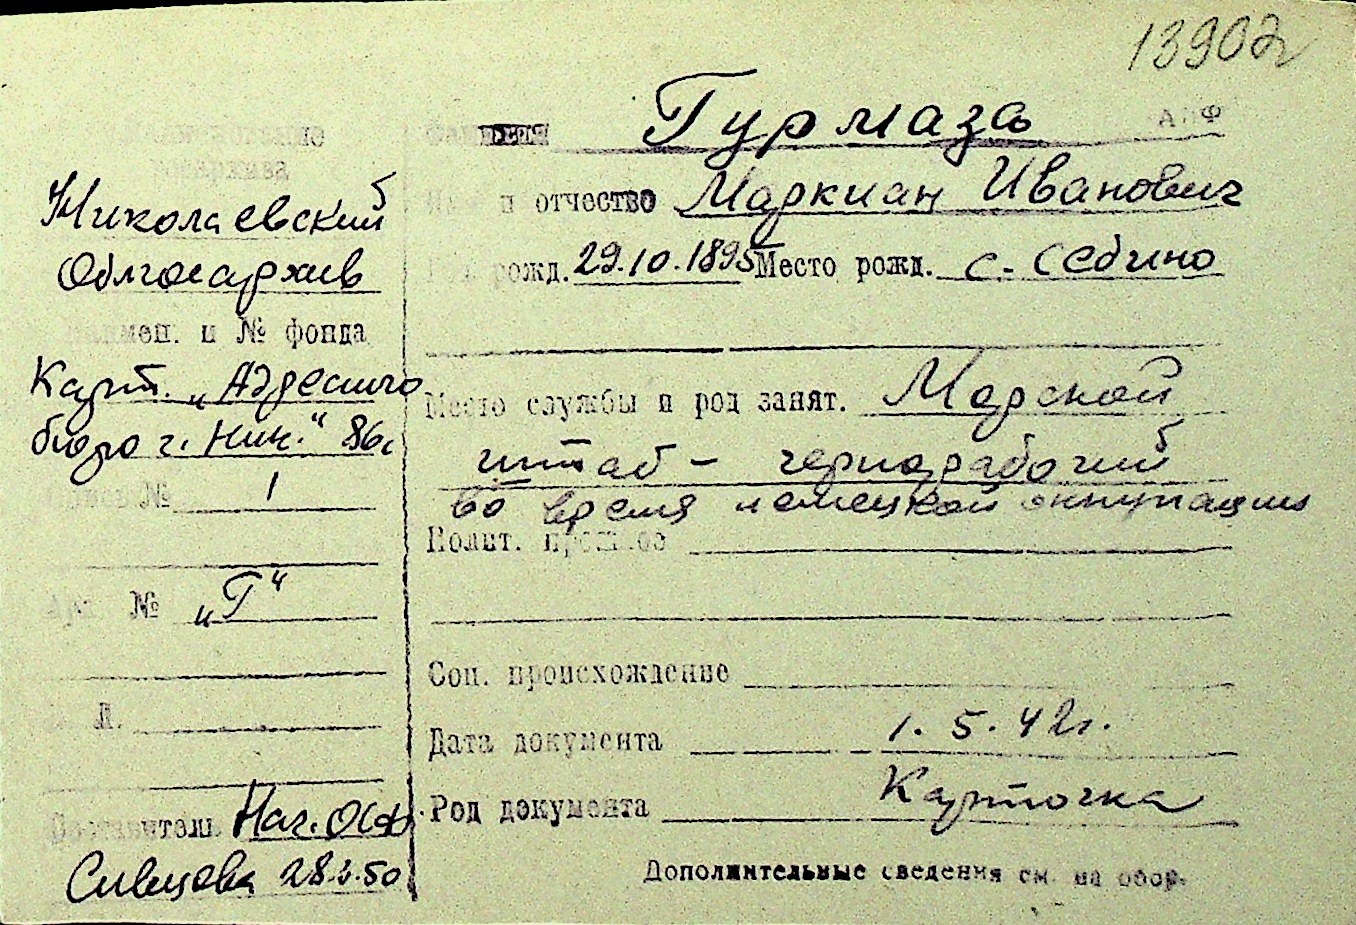 13902
Наименование
госархива
Николаевский
Облгосархив
наимен. и № фонда
Карт. „Адресного
бюро г. Ник.“ 86с
Опись № 1
Арх. № „Г“
Л.
Составитель Нач. ОСФ
Сивцова 28.2.50
Фамилия Гурмаза
Имя и отчество Маркиан Иванович
Год рожд. 29.10.1895 Место рожд. с. Себино
Место службы и род занят. Морской
штаб – чернорабочий
во время немецкой оккупации
Полит. прошлое
Соц. происхождение
Дата документа 1.5.42г.
Род документа Карточка
Дополнительные сведения см. на обор.